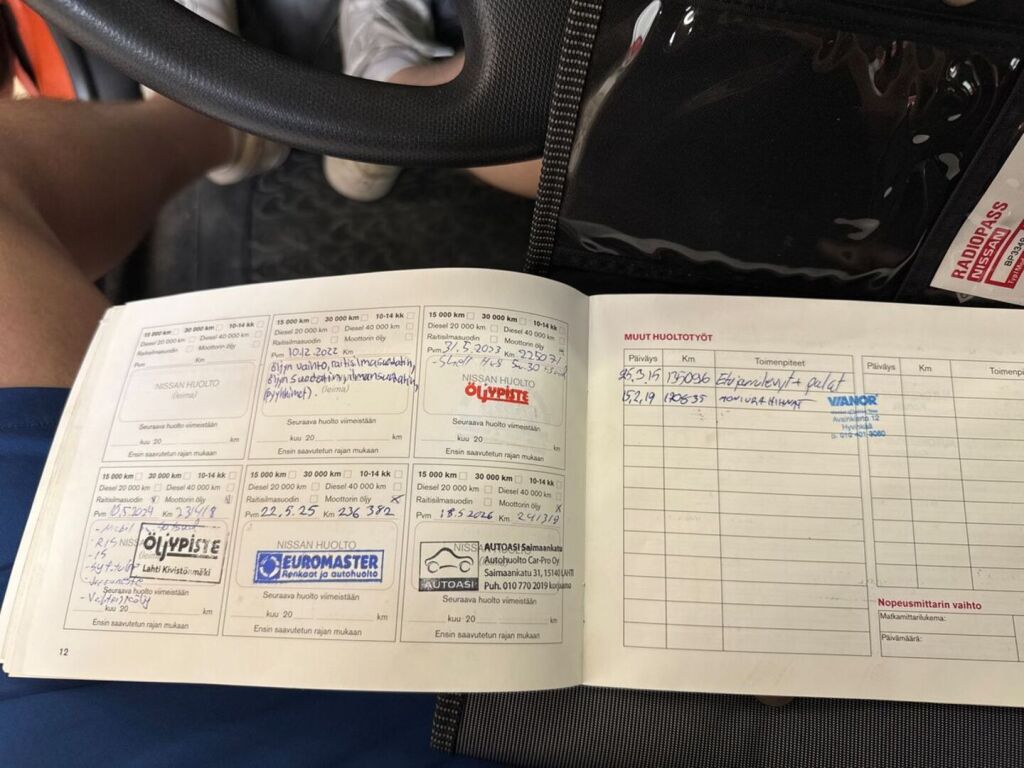 15 000 km 30 000 km 10-14 kk
Diesel 20 000 km Diesel 40 000 km
Raitisilmasuodin Moottorin öljy
Pvm Km
NISSAN HUOLTO
(leima)
Seuraava huolto viimeistään
kuu 20 km
Ensin saavutetun rajan mukaan
15 000 km 30 000 km 10-14 kk
Diesel 20 000 km Diesel 40 000 km
Raitisilmasuodin Moottorin öljy
Pvm 10.12.2022 Km
öljyn vaihto, raitisilmasuodatin,
öljyn suodatin, ilmansuodatin,
(pyyhkimet).
(leima)
Seuraava huolto viimeistään
kuu 20 km
Ensin saavutetun rajan mukaan
15 000 km 30 000 km 10-14 kk
Diesel 20 000 km Diesel 40 000 km
Raitisilmasuodin Moottorin öljy
Pvm 31.5.2023 Km 225071
-Shell Hx8 5w30
NISSAN HUOLTO
ÖLJYPISTE
Seuraava huolto viimeistään
kuu 20 km
Ensin saavutetun rajan mukaan
15 000 km 30 000 km 10-14 kk
Diesel 20 000 km Diesel 40 000 km
Raitisilmasuodin Moottorin öljy
Pvm 10.5.2024 Km 231418
ÖLJYPISTE
Lahti Kivistönmäki
Seuraava huolto viimeistään
kuu 20 km
Ensin saavutetun rajan mukaan
15 000 km 30 000 km 10-14 kk
Diesel 20 000 km Diesel 40 000 km
Raitisilmasuodin Moottorin öljy x
Pvm 22.5.25 Km 236 382
NISSAN HUOLTO
EUROMASTER
Renkaat ja autohuolto
Seuraava huolto viimeistään
kuu 20 km
Ensin saavutetun rajan mukaan
15 000 km 30 000 km 10-14 kk
Diesel 20 000 km Diesel 40 000 km
Raitisilmasuodin Moottorin öljy x
Pvm 18.5.2026 Km 241319
AUTOASI Saimaankatu
Autohuolto Car-Pro Oy
Saimaankatu 31, 15140 LAHTI
Puh. 010 770 2019 korjaamo
AUTOASI
Seuraava huolto viimeistään
kuu 20 km
Ensin saavutetun rajan mukaan
12
MUUT HUOLTOTYÖT
Päiväys Km Toimenpiteet
135096 Etujarrulevyt + palat
15.2.19 MONIURAHIHNAT
VIANOR
Avainkierto 12
Hyvinkää
p. 010 401 3060
Päiväys Km Toimenpi
Nopeusmittarin vaihto
Matkamittarilukema:
Päivämäärä:
RADIOPASS
NISSAN